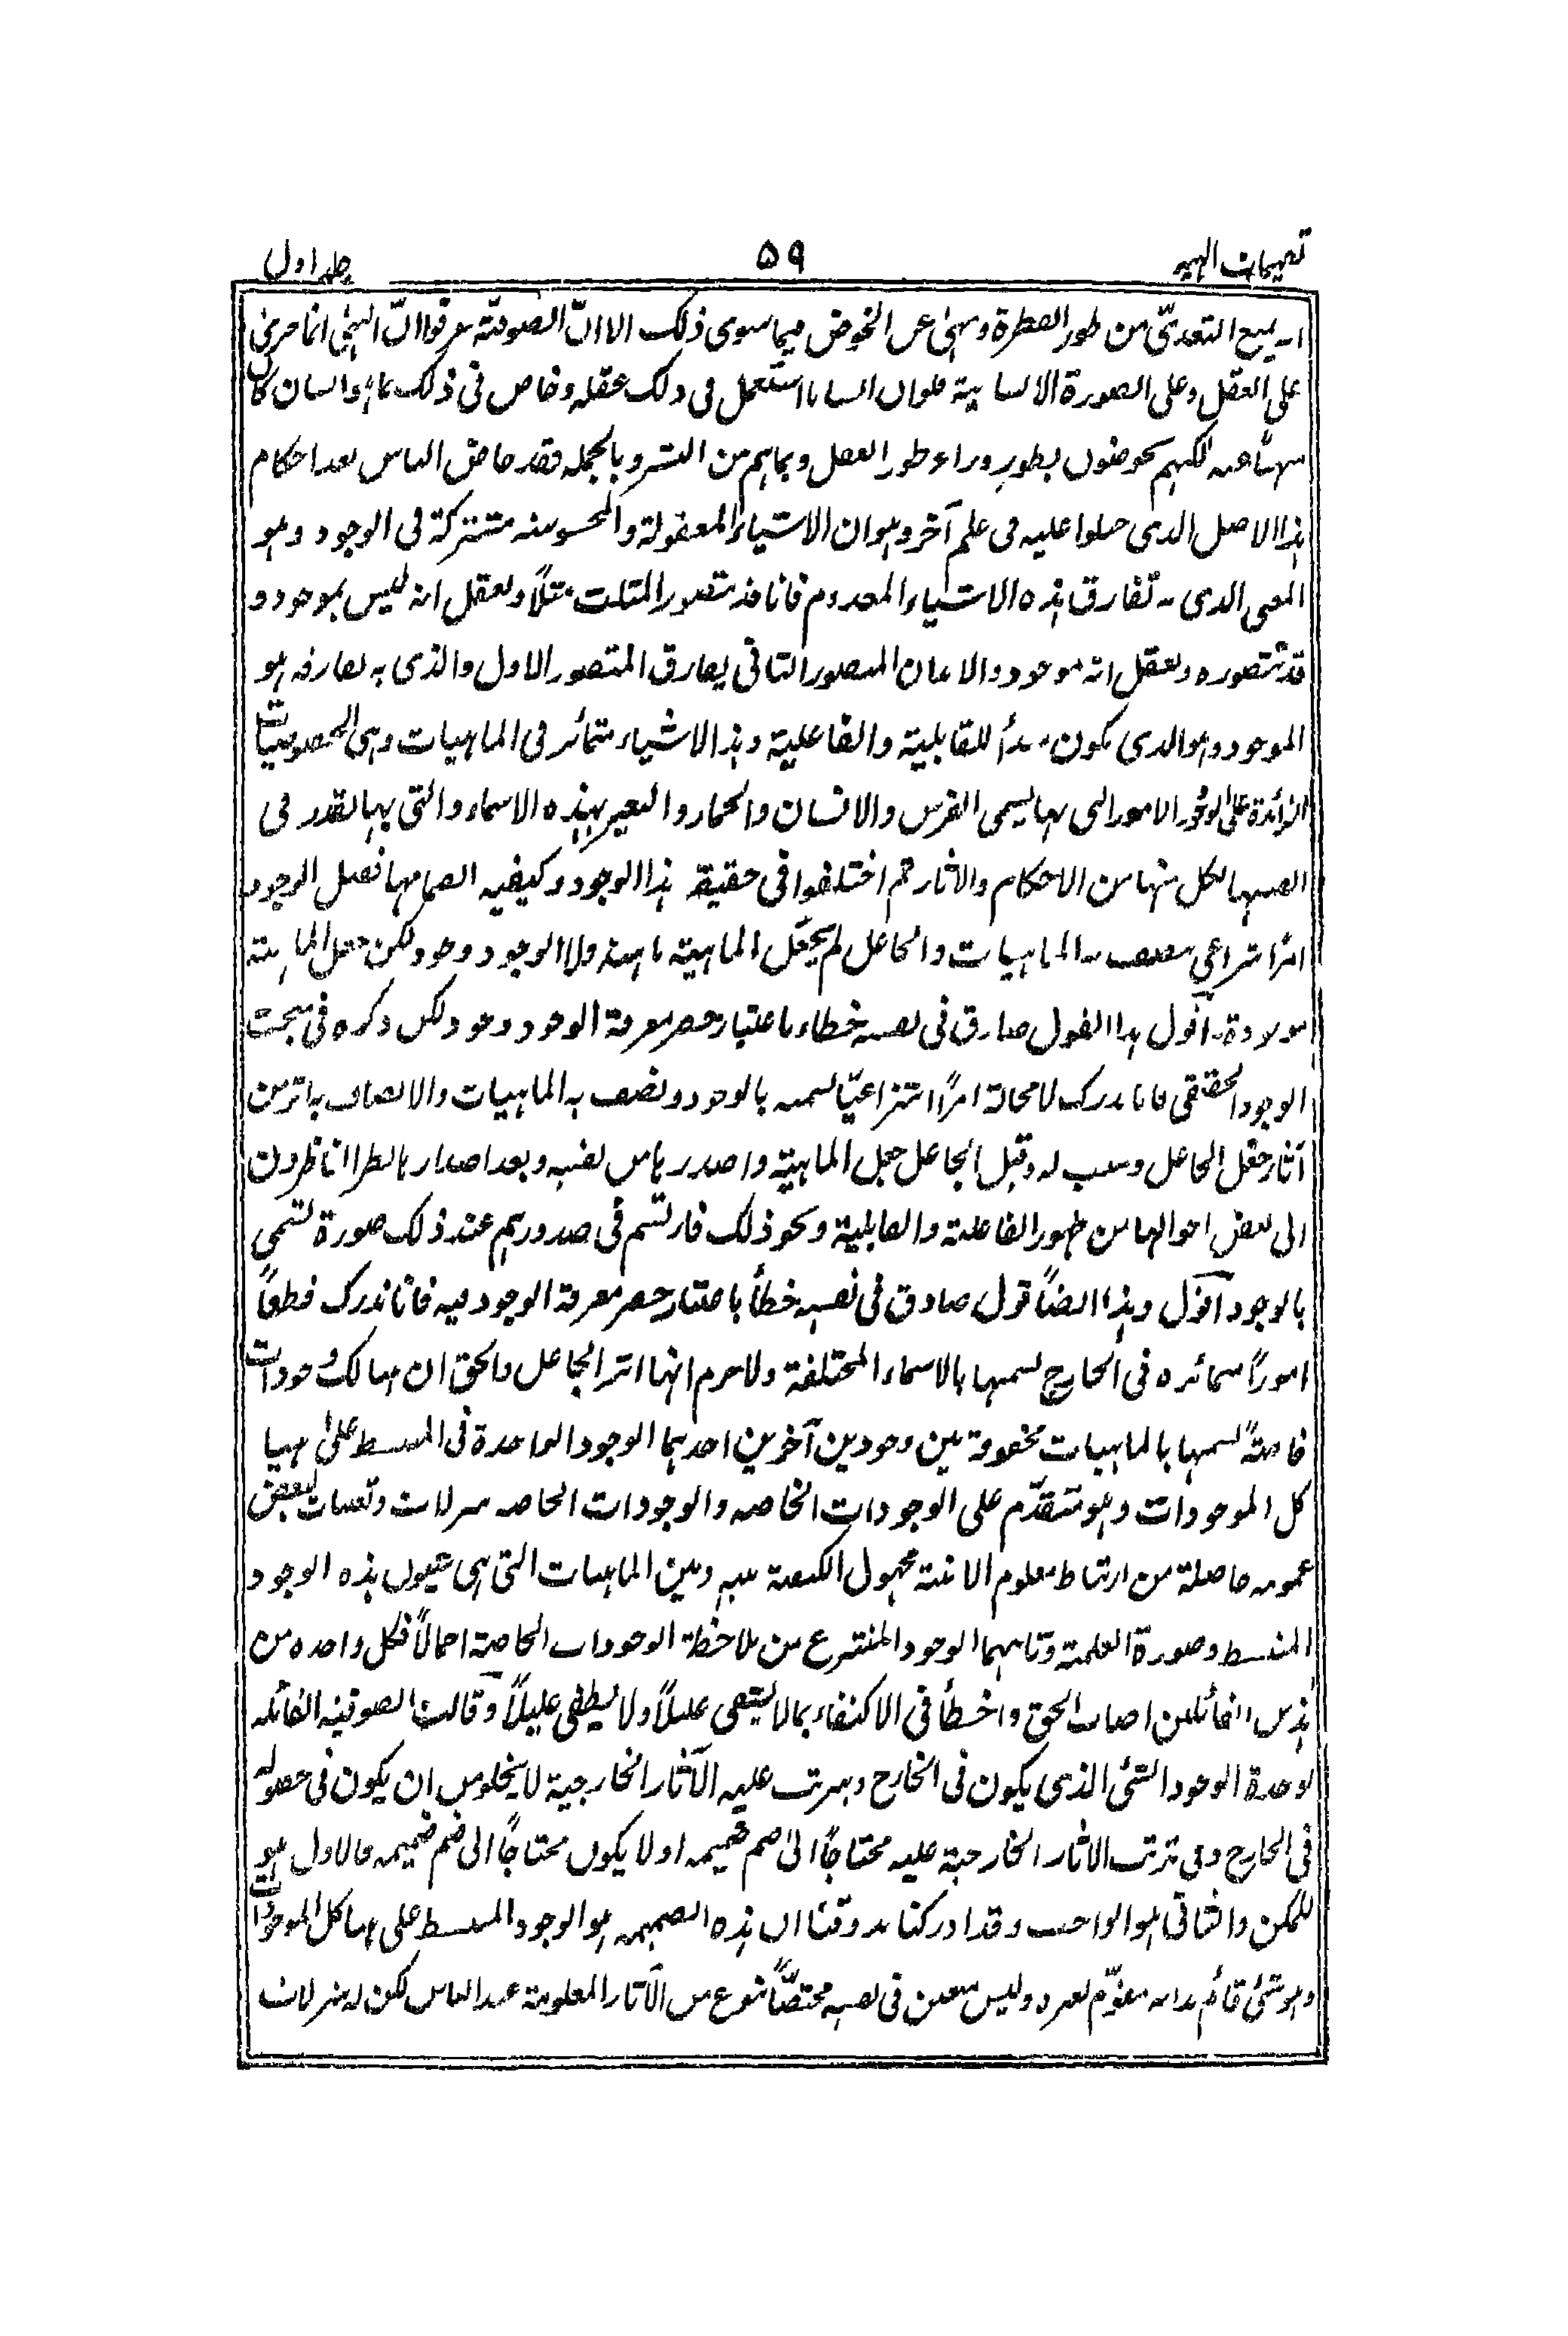 تفہیمات الہیہ ۵۹ جلد اول
التعدی من طور الفطرة ونہی عن الخوض فیما سوی ذلک الا ان الصوفیة عرفوا ان النہی انما جری
علی العقل وعلی الصورة الانسانیة فلو ان انسانا استعمل فی ذلک عقلہ وخاض فی ذلک بما ہو انسان کان
لکنہم یخوضون بطور وراء طور العقل وبما ہم من البشر وبالجملہ فقد خاض الناس بعد احکام
ہذا الاصل الذی حملوا علیہ فی علم آخر وہو ان الاشیاء المعقولة والمحسوسہ مشترکة فی الوجود وہو
المعنی الذی بہ تفارق ہذہ الاشیاء المعدوم فانا قد نتصور المثلث مثلاً ونعقل انہ لیس بموجود و
قد نتصورہ ونعقل انہ موجود المتصور الثانی یفارق المتصور الاول والذی بہ یفارقہ ہو
الموجود وہو الذی یکون مبدأ للقابلیة والفاعلیة وہذا الاشیاء متمائز فی الماہیات وہی الخصوصیات
الزائدة علی الوجود الامور التی بہا یسمی الفرس والانسان والحمار والبعیر بہذہ الاسماء والتی بہا
لکل منہا من الاحکام والاثار ثم اختلفوا فی حقیقة ہذا الوجود وکیفیہ فقیل الوجود
والجاعل لم یجعل الماہیة ماہیة ولا الوجود وجود لکن جعل الماہیة
اقول ہذا القول صادق فی نفسہ خطاء باعتبار حصر معرفة الوجود وجود لکن ذکرہ فی مبحث
الوجود الحقیقی فانا ندرک لامحالة امراً انتزاعیّا نسمیہ بالوجود ونصف بہ الماہیات والاتصاف بہ اثر من
آثار جعل الجاعل وقیل الجاعل جعل الماہیة الناظرون
الی بعض احوالہا من ظہور الفاعلیة والقابلیة ونحو ذلک فارتسم فی صدورہم عند ذلک صورة تسمی
بالوجود اقول وہذا ایضاً قول صادق فی نفسہ خطأ باعتبار حصر معرفة الوجود فیہ فانا ندرک قطعاً
اموراً متمائزہ فی الخارج نسمیہا بالاسماء المختلفة ولاجرم انہا اثر الجاعل والحق ان ہنالک وجودات
خاصة نسمیہا بالماہیات محفوفة بین وجودین آخرین احدہما الوجود الواحدة فی المنبسط علی ہیا
کل الموجودات وہو متقدّم علی الوجودات الخاصہ والوجودات الخاصہ تنزلات وتعینات لبعض
عمومہ حاصلة من ارتباط معلوم الانیة مجہول الکیفیة بینہ وبین الماہیات التی ہی ہذہ الوجود
المنبسط وصورة العلمیة وثانیہما الوجود المنتزع من ملاحظة الوجودات الخاصة اجمالاً فکل واحدہ من
ہذین القائلین اصاب الحق واخطأ فی الاکتفاء بما لا یشفی علیلاً ولا یطفی غلیلاً وقالت الصوفیہ القائلہ
لوحدة الوجود الشئ الذی یکون فی الخارج ویترتب علیہ الآثار الخارجیة لا یخلو من ان یکون فی حصولہ
فی الخارج وفی ترتب الاثار الخارجیة علیہ محتاجاً الی ضم ضمیمہ او لا یکون محتاجاً الی ضم ضمیمہ فالاول ہو
الممکن والثانی ہو الواجب وقد ادرکنا بذوقنا ان ہذہ الضمیمہ ہو الوجود المنبسط علی ہیاکل الموجودات
وہو شئ قائم بذاتہ مقوّم لغیرہ ولیس بمعین فی نفسہ مختصّاً بنوع من الآثار المعلومة عند الناس لکن لہ تنزلات